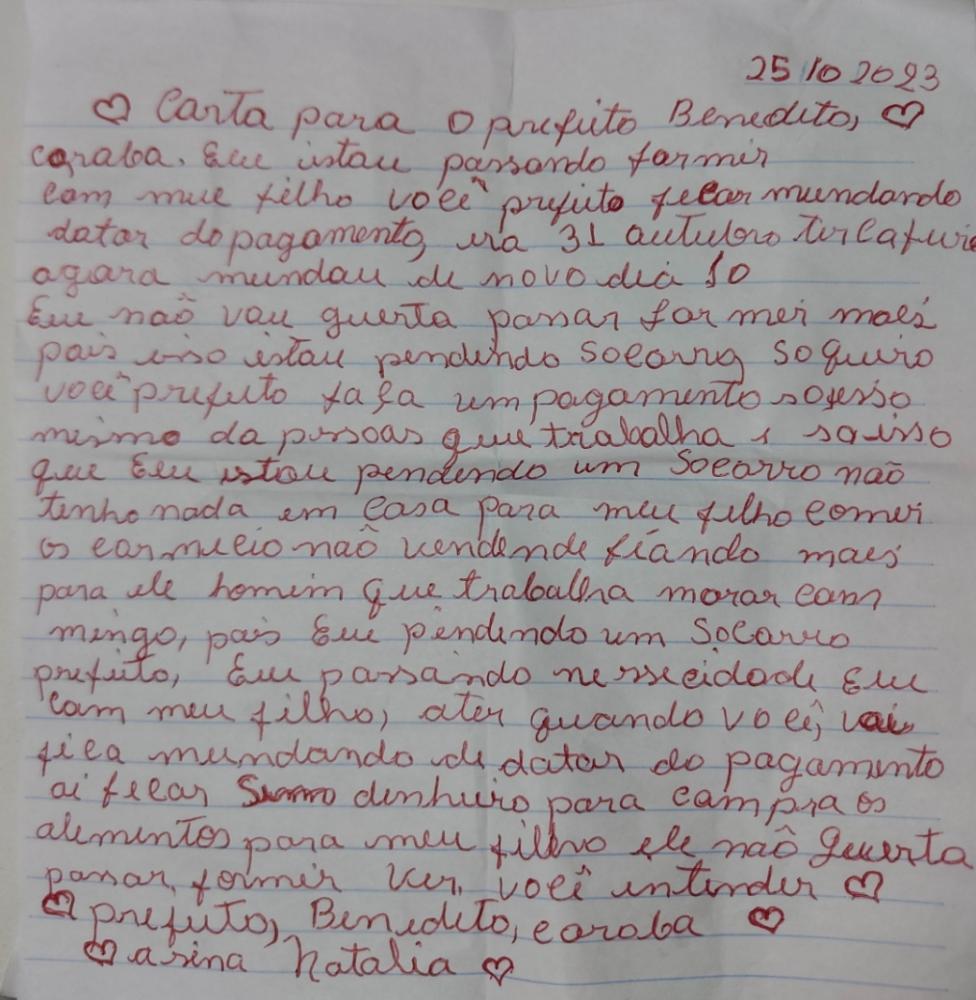 25 10 2023
♡ Carta para o prefeito Benedito, ♡
caraba. Eue estau passando formir
com meue filho você prefeito fecar mundando
datar do pagamento, era 31 autubro tircafeire
agara mundau de novo dia 10
Eue não vau guenta passar formei maes
pais isso estau pendendo socarro, so queiro
você prefeito faça um pagamento so esso
mesmo da pessoas que trabalha e sa isso
que Eue estau pendendo um Socarro não
tenho nada em casa para meu filho comer
os carmecio não vendende fiando maes
para ele homem que trabalha morar cam
mingo, pais Eue pendendo um Socarro
prefeito, Eue passando nessecidade Eue
Cam meu filho, ater quando você, vai
fica mundando de datar do pagamento
ai fecar denheiro para campra os
alementos para meu filho ele não guenta
passar, formir ver, você entender ♡
♡ prefeito, Benedito, caraba ♡
♡ asina Natalia ♡